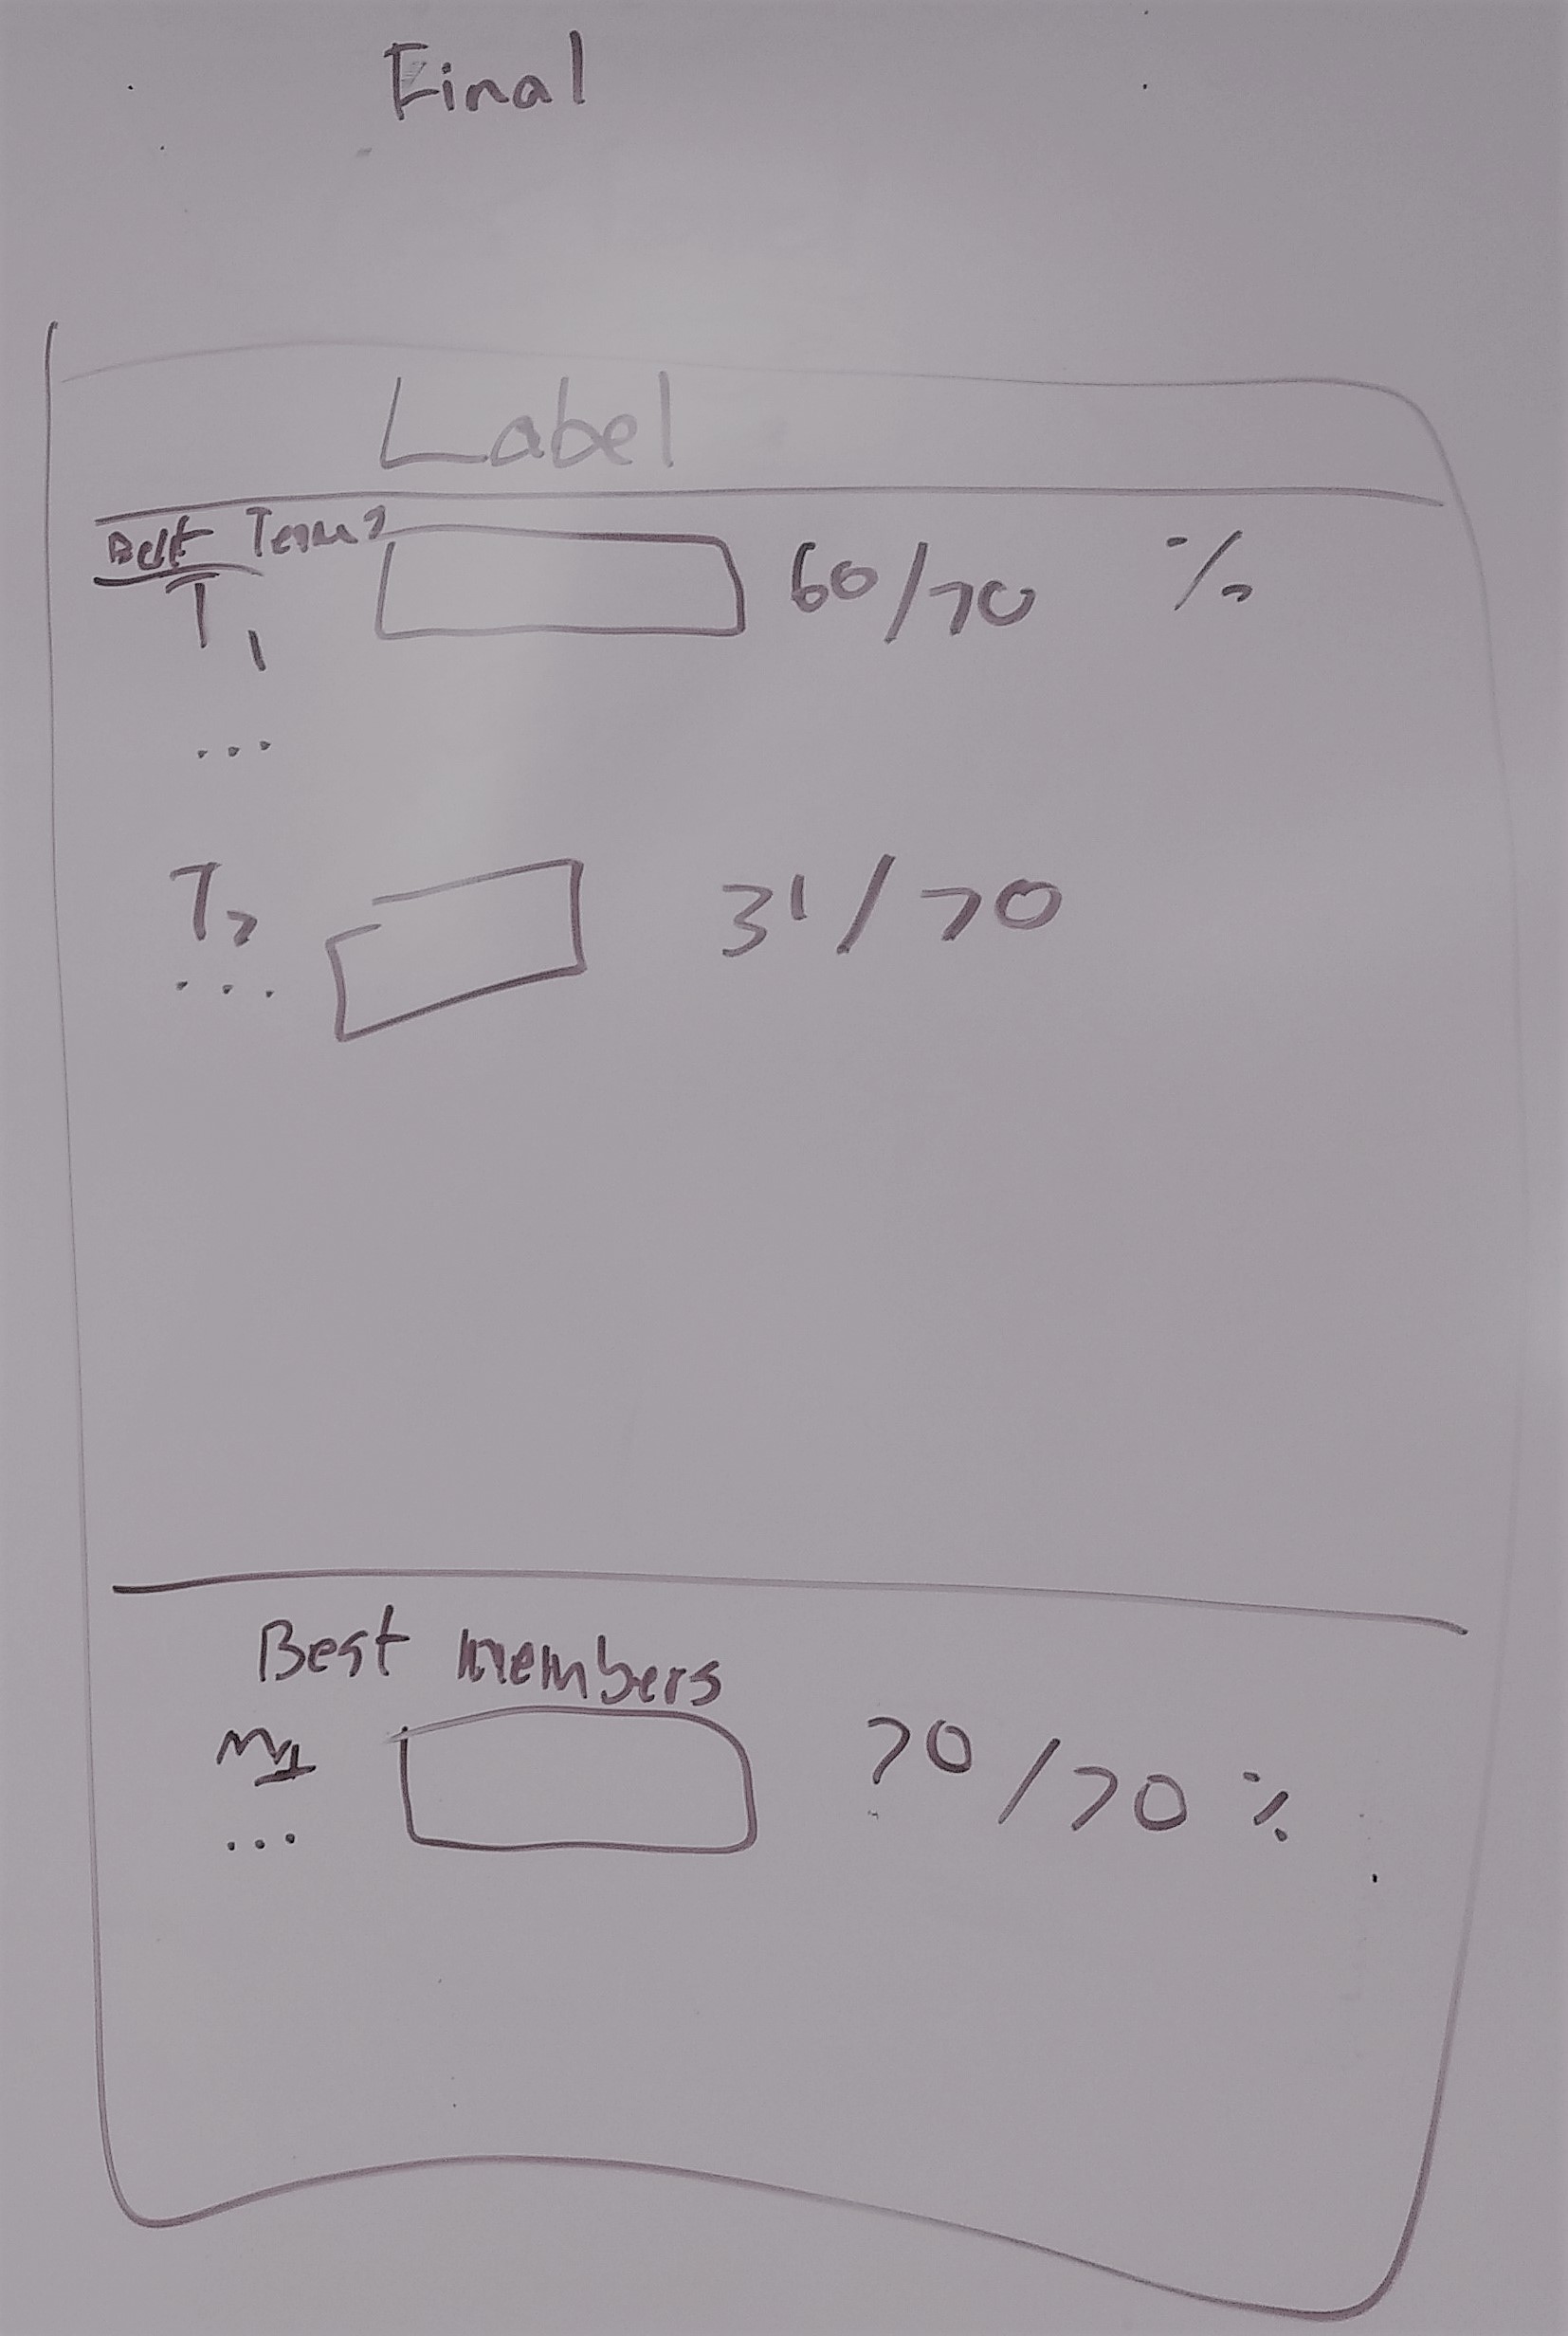 Final
Label
Best Teams
T1 60/70 %
...
T2 31/70
...
Best members
M1 70/70 %
...